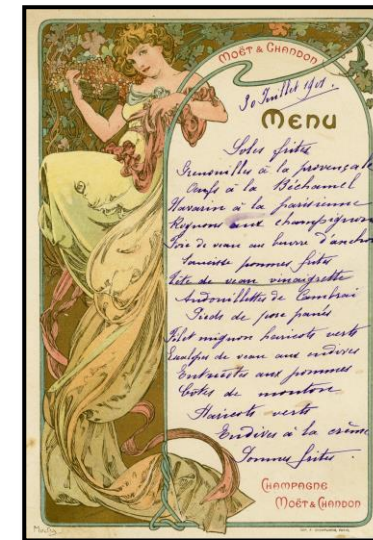 MOËT & CHANDON
30 Juillet 1901.
MENU
Soles frites
Grenouilles à la provençale
Oeufs à la Béchamel
Navarin à la parisienne
Rognons aux champignon
Foie de veau au beurre d'anchoi
Saucisse pommes frites
Tête de veau vinaigrette
Andouillettes de Cambrai
Pieds de porc panés
Filet mignon haricots verts
Escalopes de veau aux endives
Entrecôtes aux pommes
Côtes de mouton
Haricots verts
Endives à la crème
Pommes frites
CHAMPAGNE
MOËT & CHANDON
Mucha